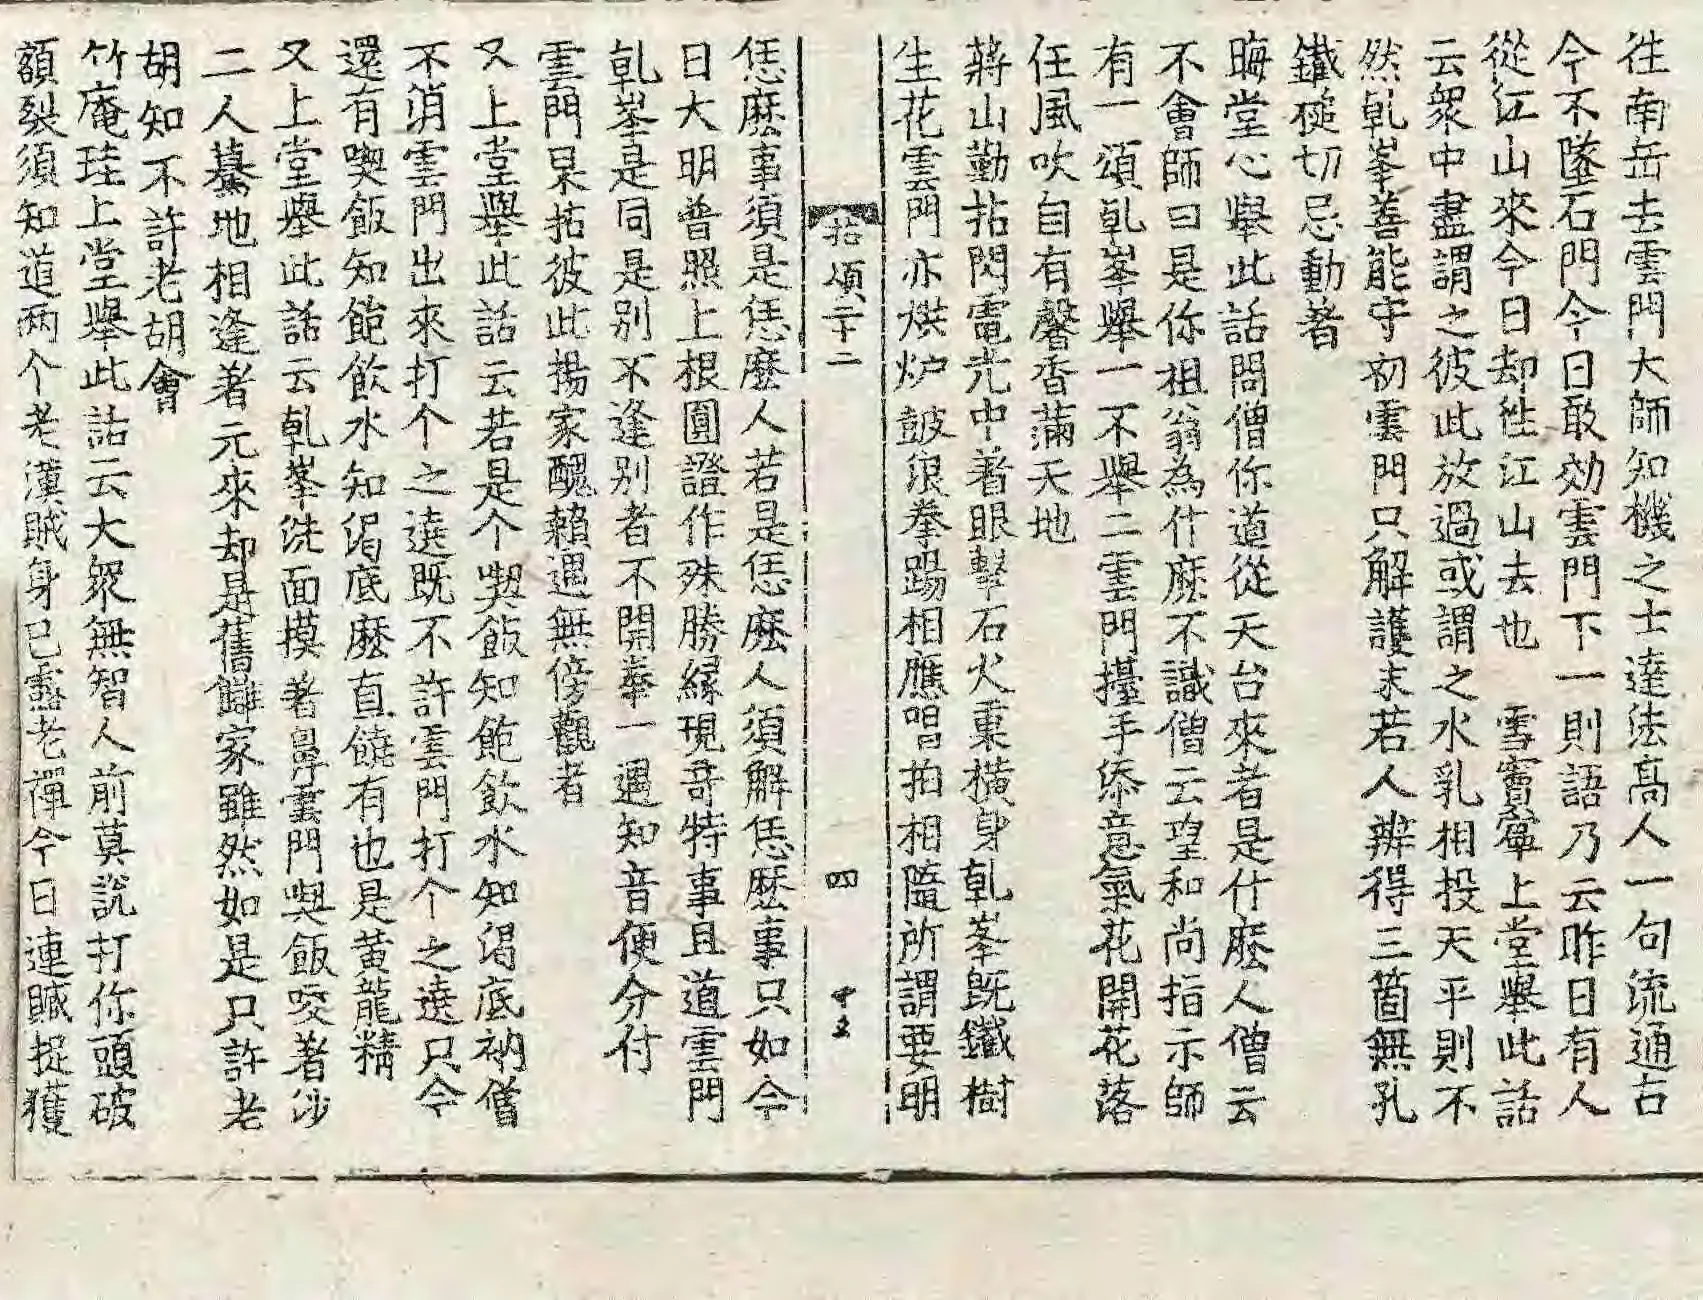 往南岳去雲門大師知機之士達法高人一句流通古
今不墜石門今日敢効雲門下一則語乃云昨日有人
從江山來今日却徃江山去也 雪竇寧上堂舉此話
云衆中盡謂之彼此放過或謂之水乳相投天平則不
然乹峯善能守初雲門只解護末若人辨得三箇無孔
鐵槌切忌動著
晦堂心舉此話問僧你道從天台來者是什麽人僧云
不會師曰是你祖翁為什麽不識僧云望和尚指示師
有一頌乹峯舉一不舉二雲門擡手添意氣花開花落
任風吹自有馨香滿天地
蔣山勤拈閃電光中著眼擊石火裏橫身乹峯旣鐵樹
生花雲門亦烘炉皷浪拳踢相應唱拍相隨所謂要明
拈頌二十二 四
恁麽事須是恁麽人若是恁麽人須解恁麽事只如今
日大明普照上根圓證作殊勝緣現奇特事且道雲門
乹峯是同是別不逢別者不開拳一遇知音便分付
雲門杲拈彼此揚家醜賴遇無傍觀者
又上堂舉此話云若是个喫飯知飽飲水知渴底衲僧
不消雲門出來打个之遶既不許雲門打个之遶只今
還有喫飯知飽飲水知渴底麽直饒有也是黄龍精
又上堂舉此話云乹峯洗面摸著鼻雲門喫飯咬著沙
二人驀地相逢著元來却是舊讎家雖然如是只許老
胡知不許老胡會
竹庵珪上堂舉此話云大衆無智人前莫說打你頭破
額裂須知道两个老漢賊身已露老禪今日連贓捉獲